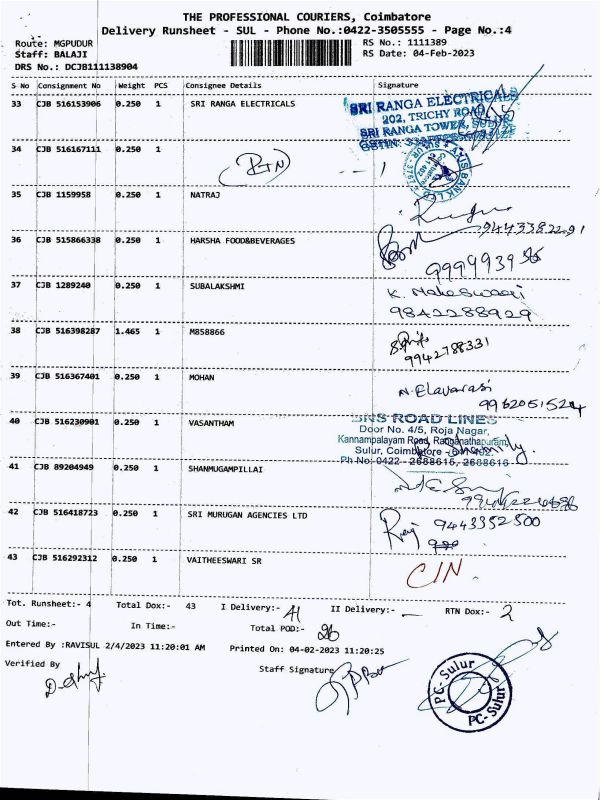 THE PROFESSIONAL COURIERS, Coimbatore
Delivery Runsheet - SUL - Phone No.:0422-3505555 - Page No.:4
Route: MGPUDUR RS No.: 1111389
Staff: BALAJI RS Date: 04-Feb-2023
DRS No.: DCJB111138904
S No Consignment No Weight PCS Consignee Details Signature
33 CJB 516153906 0.250 1 SRI RANGA ELECTRICALS
SRI RANGA ELECTRICALS
202, TRICHY ROAD,
SRI RANGA TOWER, SULUR
34 CJB 516167111 0.250 1
RTN
35 CJB 1159958 0.250 1 NATRAJ
9443382291
36 CJB 515866338 0.250 1 HARSHA FOOD&BEVERAGES
37 CJB 1289240 0.250 1 SUBALAKSHMI K. Maheswaari
9842288929
38 CJB 516398287 1.465 1 M858866
9942788331
39 CJB 516367401 0.250 1 MOHAN N. Elavarasi
9962051524
40 CJB 516230901 0.250 1 VASANTHAM
SNS ROAD LINES
Door No. 4/5, Roja Nagar,
Kannampalayam Road, Ranganathapuram,
Sulur, Coimbatore
Ph No: 0422- 2688615, 2688616
41 CJB 89204949 0.250 1 SHANMUGAMPILLAI
42 CJB 516418723 0.250 1 SRI MURUGAN AGENCIES LTD 9443352500
43 CJB 516292312 0.250 1 VAITHEESWARI SR CIN.
Tot. Runsheet:- 4 Total Dox:- 43 I Delivery:- 41 II Delivery:- - RTN Dox:- 2
Out Time:- In Time:- Total POD:- 26
Entered By :RAVISUL 2/4/2023 11:20:01 AM Printed On: 04-02-2023 11:20:25
Verified By Staff Signature
PC-Sulur
PC-Sulur